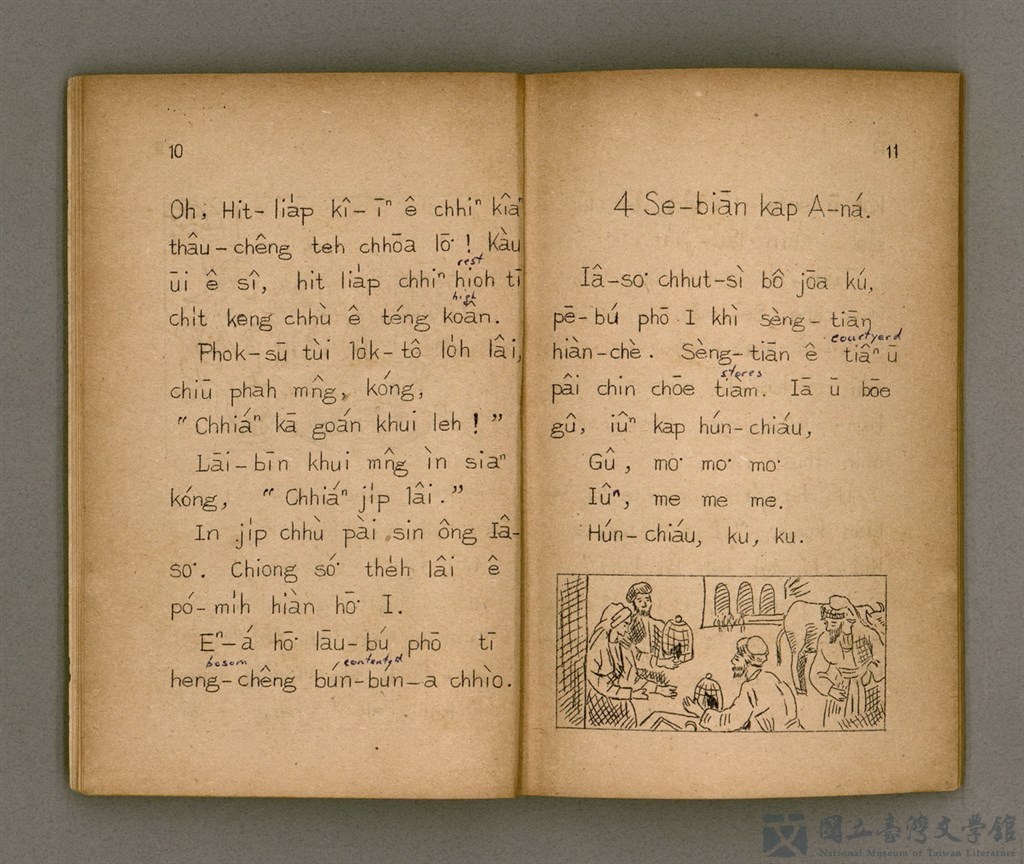 10
Oh, Hit-lia̍p kî-īⁿ ê chhiⁿ kîaⁿ
thâu-chêng teh chhōa lō͘ ! Kàu
rest
ūi ê sî, hit lia̍p chhiⁿ hioh tī
high
chi̍t keng chhù ê téng koân.
Phok-sū tùi lo̍k-tô lo̍h lâi,
chiū phah mn̂g, kóng,
“Chhiáⁿ kā goán khui leh ! ”
Lāi-bīn khui mn̂g ìn siaⁿ
kóng, “ Chhiáⁿ ji̍p lâi.”
In ji̍p chhù pài sin ông Iâ-
so͘. Chiong só͘ the̍h lâi ê
pó-mi̍h hiàn hō͘ I.
Eⁿ-á hō͘ lāu-bú phō tī
bosom contentyd
heng-chêng bún-bún-a chhìo.
11
4 Se-biān kap A-ná.
Iâ-so͘ chhut-sì bô jōa kú,
pē-bú phō I khì sèng-tiān
courtyard
hiàn-chè. Sèng-tiān ê tiâⁿ ū
stores
pâi chin chōe tiàm. Iā ū bōe
gû, iûⁿ kap hún-chiáu,
Gû, mo͘ mo͘ mo͘
Iûⁿ, me me me.
Hún-chiáu, ku, ku.
國立臺灣文学館
National Museum of Taiwan Literature